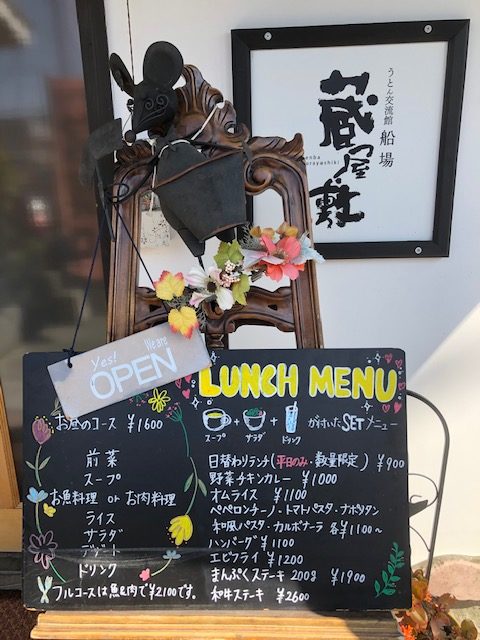 うとん交流館
船場
蔵つ屋敷
Yes! We are
OPEN
LUNCH MENU
スープ サラダ ドリンク が付いたSETメニュー
お昼のコース ¥1600
前菜
スープ
お魚料理 or お肉料理
ライス
サラダ
デザート
ドリンク
フルコースは魚&肉で¥2100です。
日替わりランチ(平日のみ・数量限定) ¥900
野菜チキンカレー ¥1000
オムライス ¥1100
ペペロンチーノ・トマトパスタ・ナポリタン
和風パスタ・カルボナーラ 各¥1100~
ハンバーグ ¥1100
エビフライ ¥1200
まんぷくステーキ 200g ¥1900
和牛ステーキ ¥2600